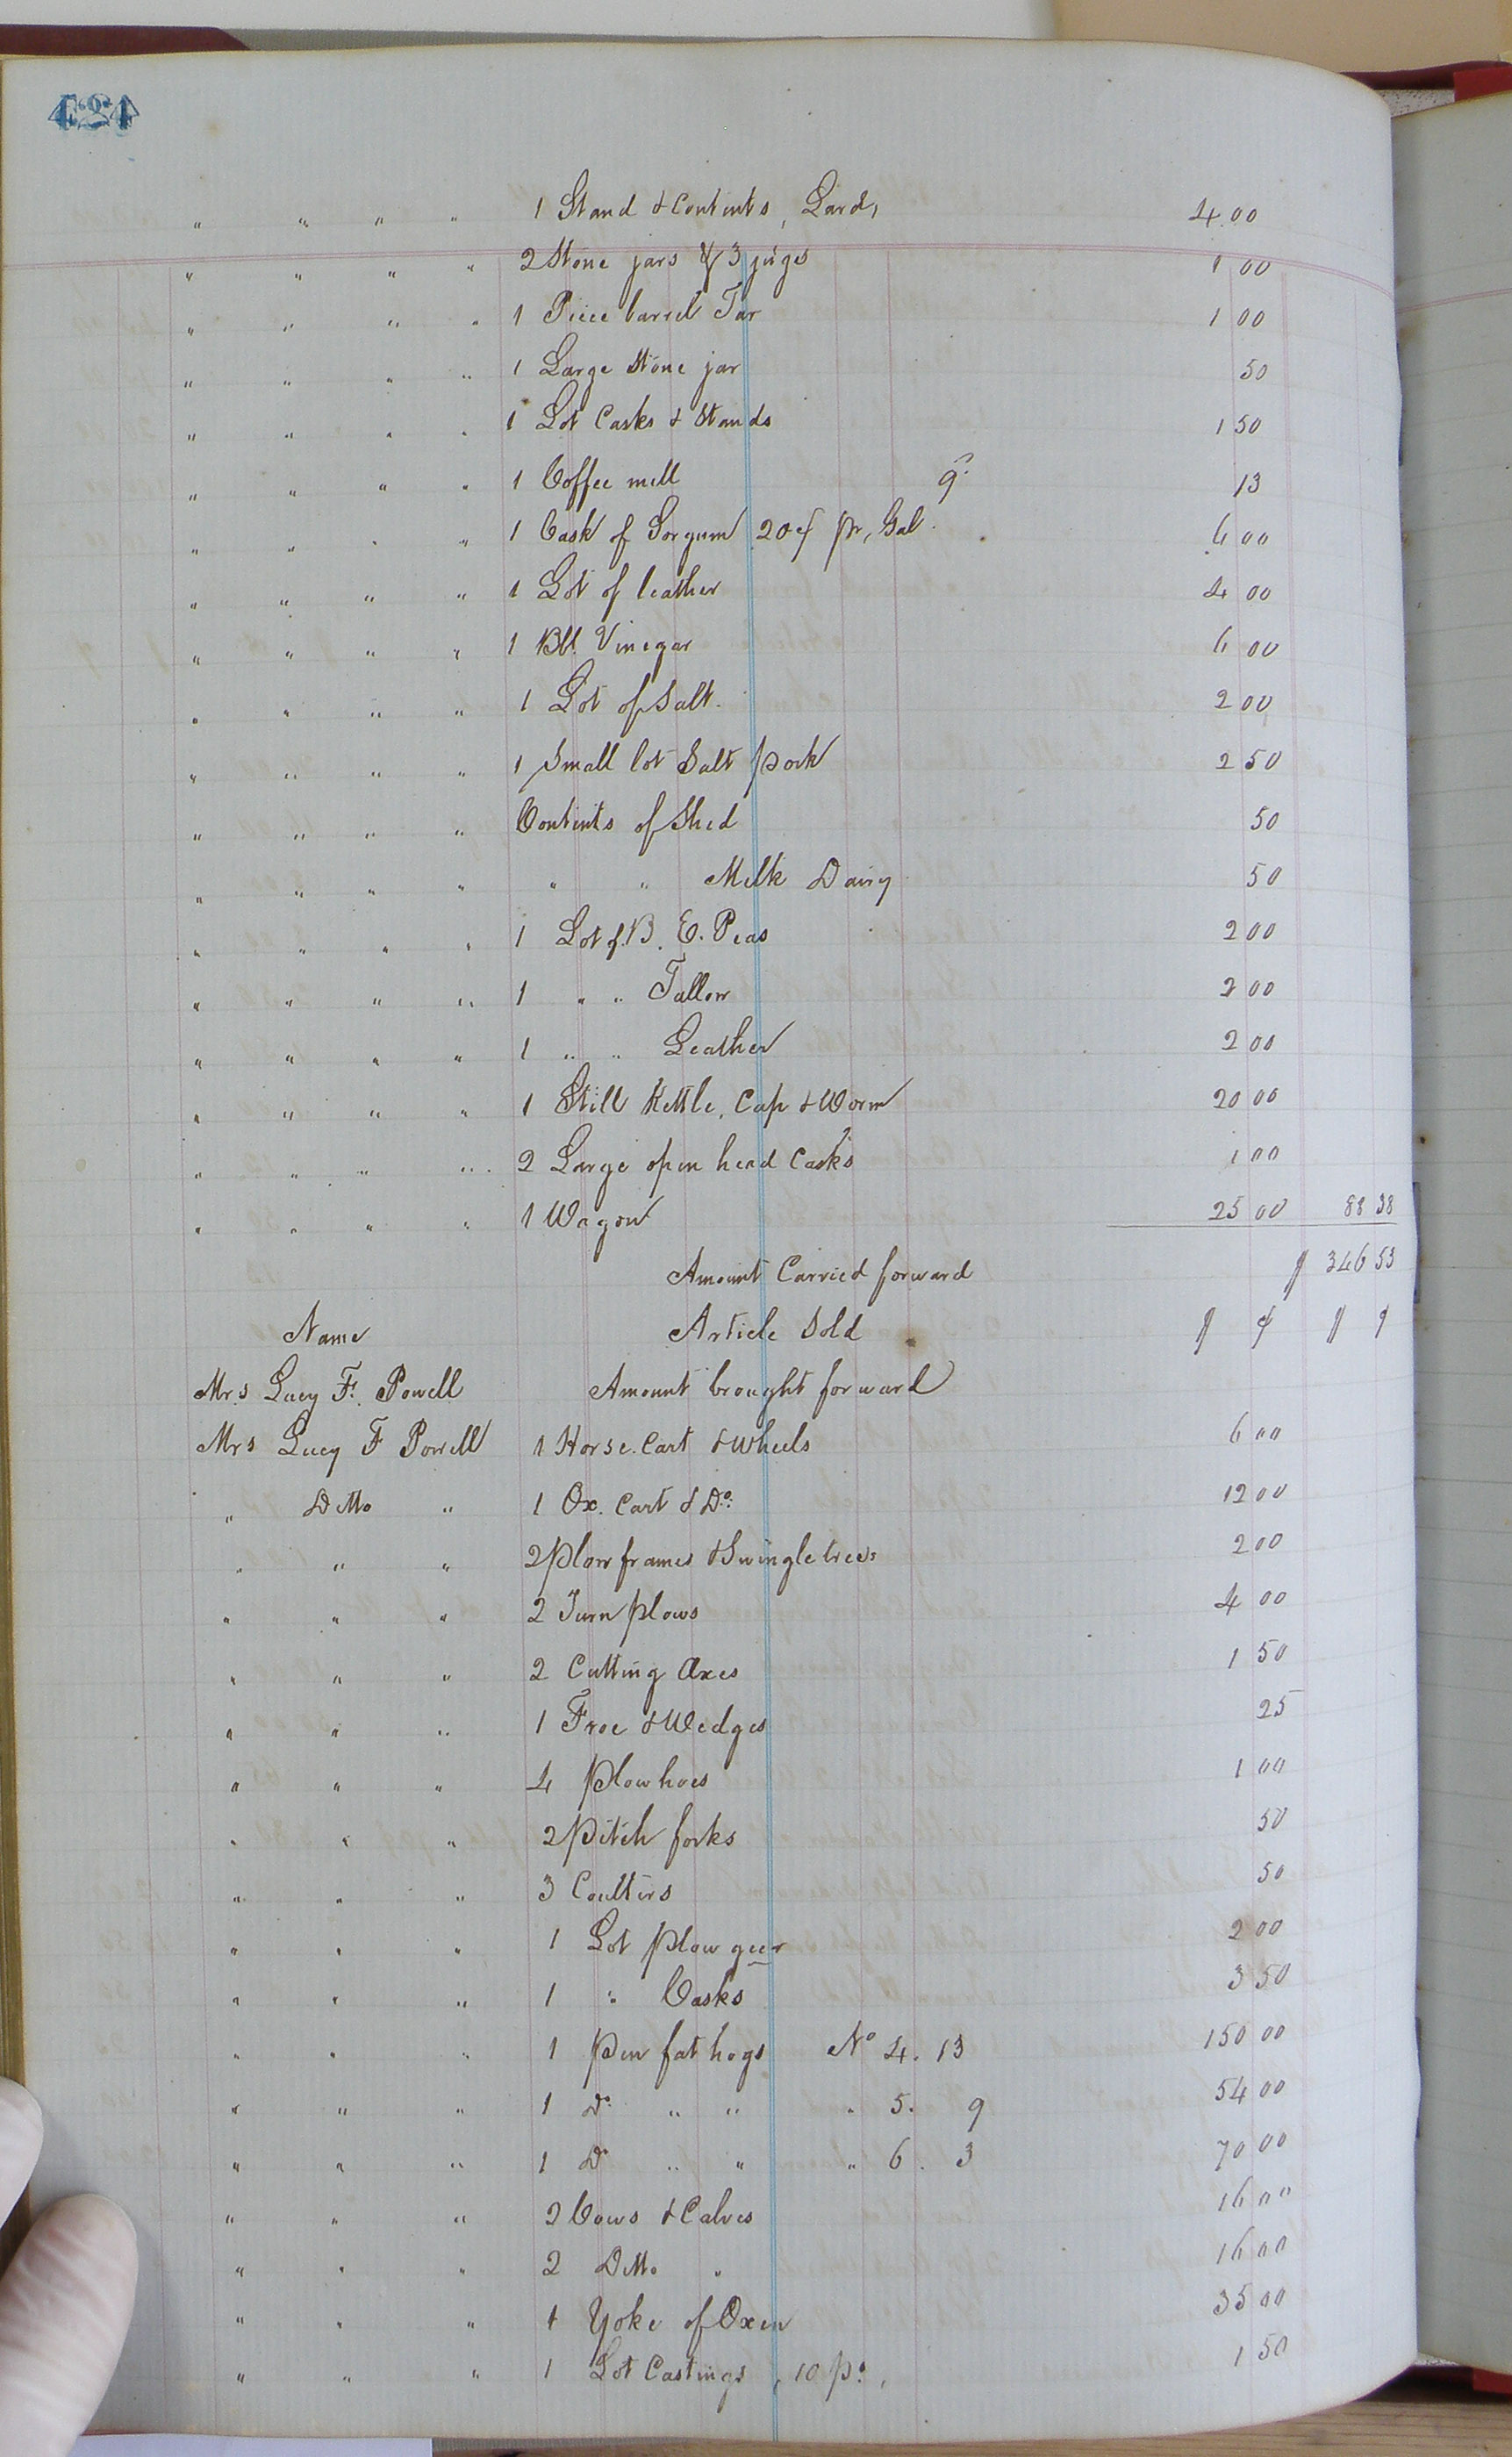 424
" " " " 1 Stand & Contents, Lard, 4.00
" " " " 2 Stone jars & 3 juges 1 00
" " " " 1 Piece barrel Tar 1 00
" " " " 1 Large Stone jar 50
" " " " 1 Lot Casks & Stands 1 50
" " " " 1 Coffee mill 13
" " " " 1 Cask of Sorgum 20¢ pr, Gal. 6 00
" " " " 1 Lot of leather 4 00
" " " " 1 Bbl. Vinegar 6 00
" " " " 1 Lot of Salt. 2 00
" " " " 1 Small lot Salt pork 2 50
" " " " Contents of Shed 50
" " " " " " Milk Dairy 50
" " " " 1 Lot of B. E. Peas 2 00
" " " " 1 " " Tallow 2 00
" " " " 1 " " Leather 2 00
" " " " 1 Still Kettle, Cap & Worm 20 00
" " " " 2 Large open head Casks 1 00
" " " " 1 Wagon 25 00 88 38
Amount Carried forward $ 346 53
Name Article Sold $ ¢ $ ¢
Mrs Lucy F. Powell Amount brought forward
Mrs Lucy F Powell 1 Horse. Cart & Wheels 6 00
" Ditto " 1 Ox. Cart & Do. 12 00
" " " 2 Plow frames & Swingletrees 2 00
" " " 2 Turn plows 4 00
" " " 2 Cutting Axes 1 50
" " " 1 Froe & Wedges 25
" " " 4 Plow hoes 1 00
" " " 2 Pitch forks 50
" " " 3 Coulters 50
" " " 1 Lot Plow geer 2 00
" " " 1 " Casks 3 50
" " " 1 Pen fat hogs No 4. 13 150 00
" " " 1 Do " " " 5. 9 54 00
" " " 1 Do " " " 6. 3 70 00
" " " 2 Cows & Calves 16 00
" " " 2 Ditto " 16 00
" " " 1 Yoke of Oxen 35 00
" " " 1 Lot Castings, 10 ps, 1 50